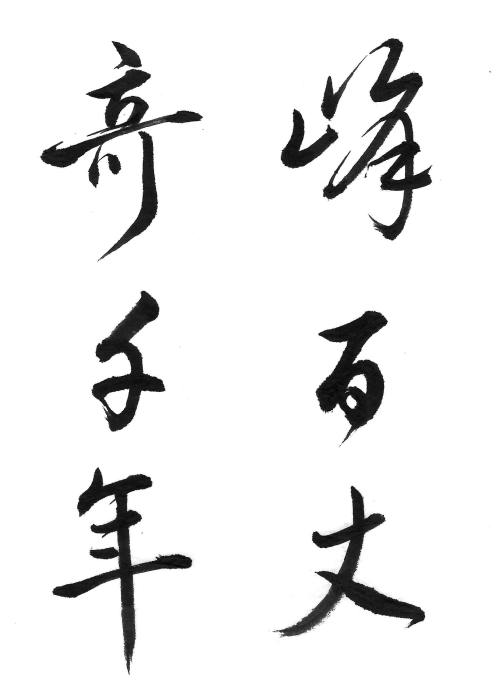 峰百丈
奇千年